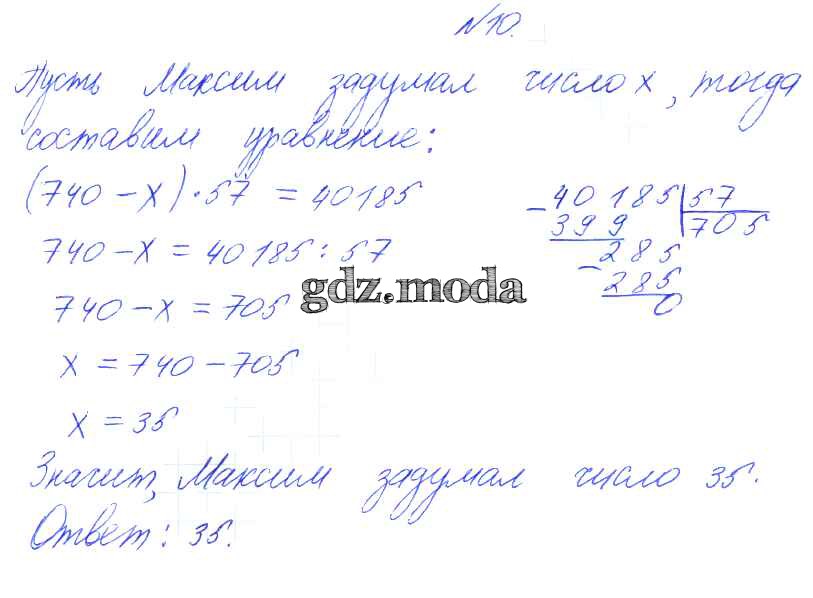 №10.
Пусть Максим задумал число x, тогда
составим уравнение:
(740 - x) · 57 = 40185
740 - x = 40185 : 57
740 - x = 705
x = 740 - 705
x = 35
- 40185 | 57
399 | 705
- 285
285
0
gdz.moda
Значит, Максим задумал число 35.
Ответ: 35.